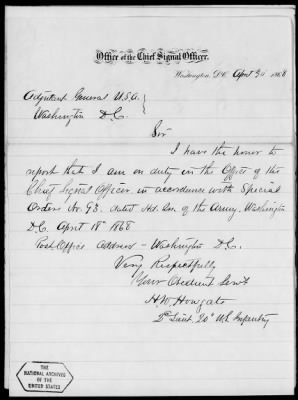 Office of the Chief Signal Officer.
Washington, D.C. April 30 1868
Adjutant General U.S.A.
Washington D.C.
Sir
I have the honor to
report that I am on duty in the Office of the
Chief Signal Officer in accordance with Special
Orders No. 93. dated Hd. Qrs. of the Army, Washington
D.C. April 18th 1868
Post Office Address - Washington D.C.
Very Respectfully
Your Obedient Servt
H.W. Howgate
2d Lieut. 20th U.S. Infantry
THE
NATIONAL ARCHIVES
OF THE
UNITED STATES